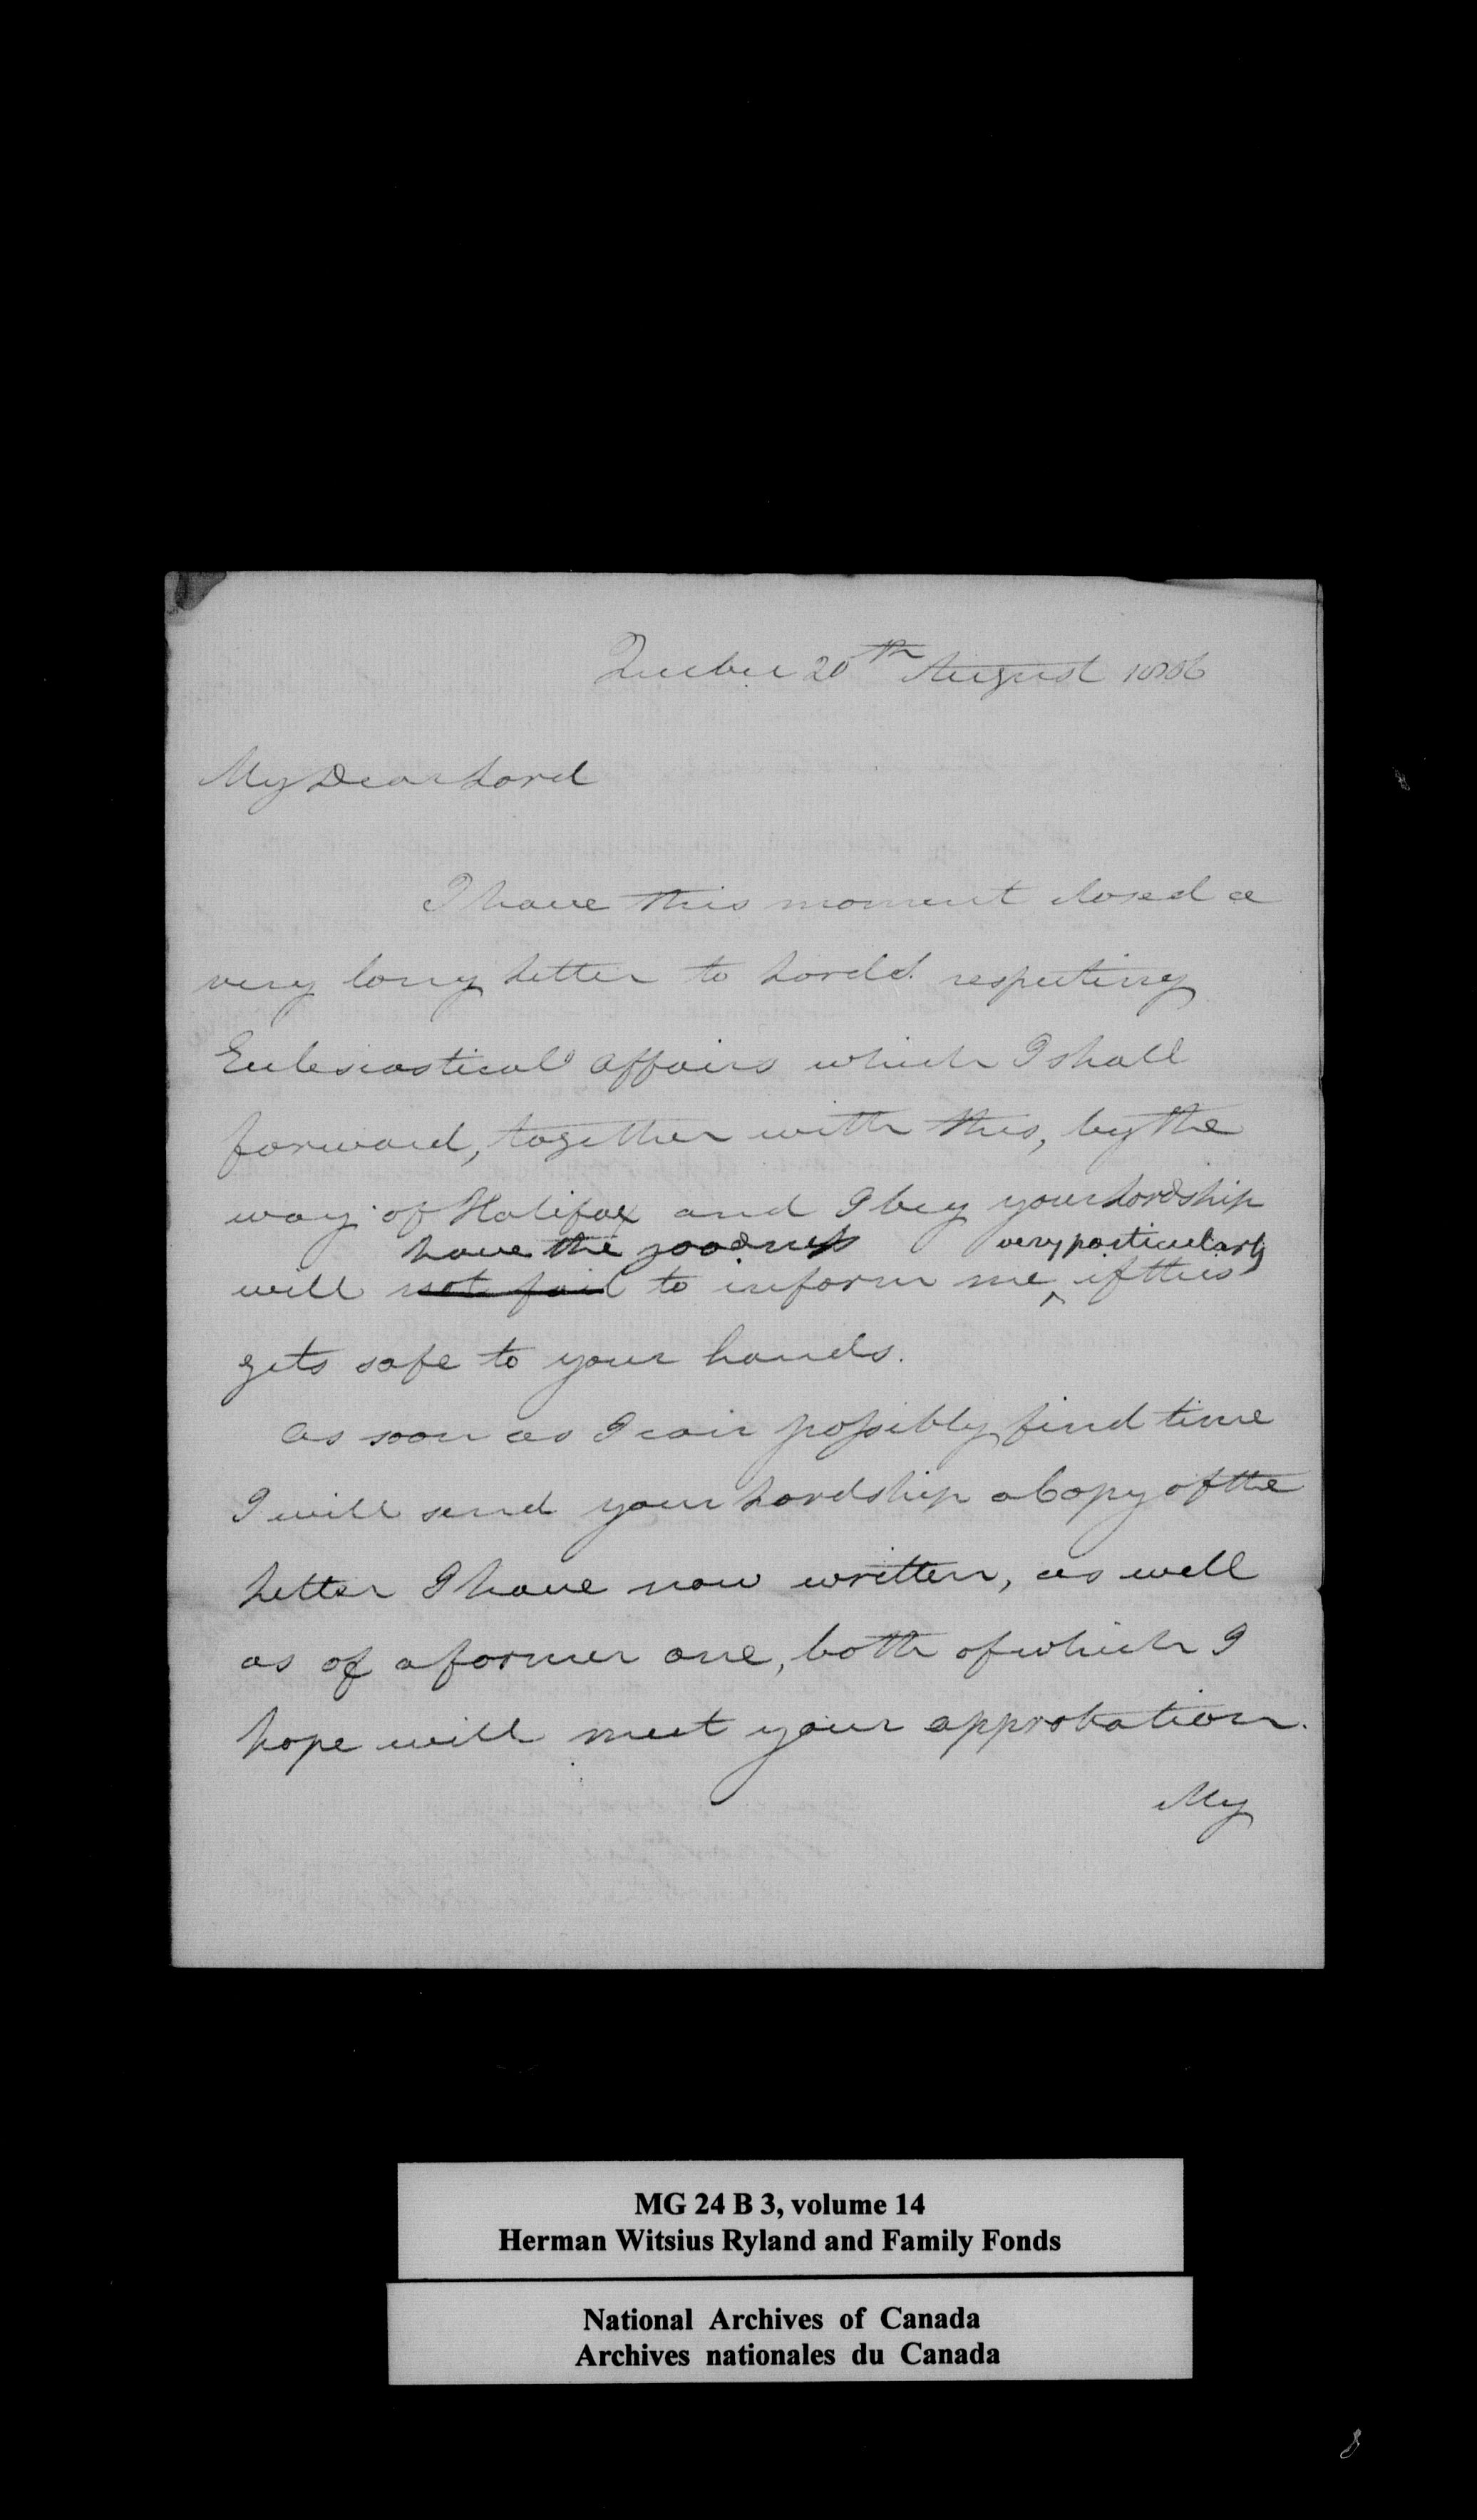 Quebec 20th August 1806
My Dear Lord
I have this moment closed a
very long Letter to Lord S. respecting
Eclesiastical affairs which I shall
forward, together with this, by the
way of Halifax and I beg your Lordship
have the goodness very particularly
will not fail to inform me ^ if this
gets safe to your hands.
As soon as I can possibly find time
I will send your Lordship a Copy of the
Letter I have now written, as well
as of a former one, both of which I
hope will meet your approbation.
My
MG 24 B 3, volume 14
Herman Witsius Ryland and Family Fonds
National Archives of Canada
Archives nationales du Canada
8